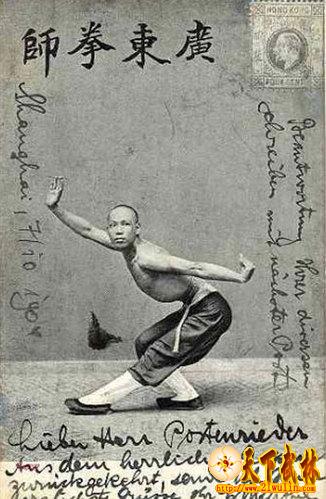 師拳東廣
HONG KONG
FOUR CENTS
Shanghai, 7/10
Beantwortung Ihrer diversen
schreiben mit nächster Post.
Lieber Herr Postenrieder
Aus dem herrlichen
zurückgekehrt,
天下武林
www.21wulin.com